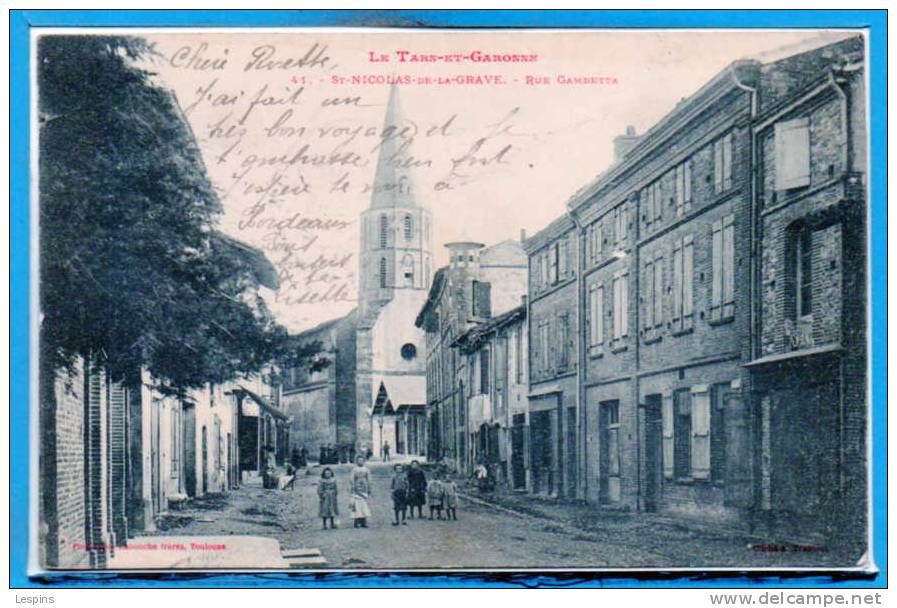 LE TARN-ET-GARONNE
41. - ST-NICOLAS-DE-LA-GRAVE. - RUE GAMBETTA
Chérie Pierrette,
J'ai fait un
très bon voyage et je
t'embrasse bien fort.
J'espère te voir à
Bordeaux
Tout
Lisette
Labouche frères, Toulouse
Lespins
www.delcampe.net